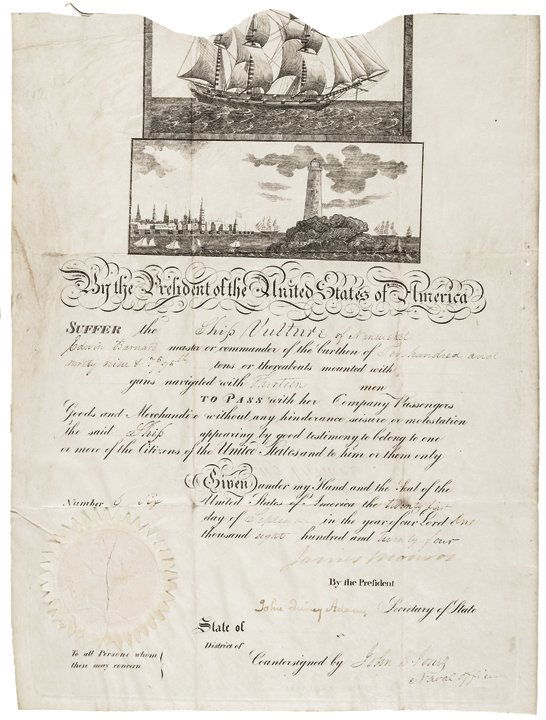 By the President of the United States of America
SUFFER the Ship Vulture of
Edwin Barnard master or commander of the burthen of hundred and
ninety nine & tons or thereabouts mounted with
guns navigated with Thirteen men
TO PASS with her Company Passengers
Goods and Merchandize without any hinderance seisure or molestation
the said Ship appearing by good testimony to belong to one
or more of the Citizens of the United States and to him or them only
Given under my Hand and the Seal of the
Number 6 Six United States of America the twenty
day of in the year of our Lord One
thousand eight hundred and twenty four
James Monroe
By the President
John Quincy Adams Secretary of State
State of
District of
To all Persons whom
these may concern
Countersigned by John
Naval Officer